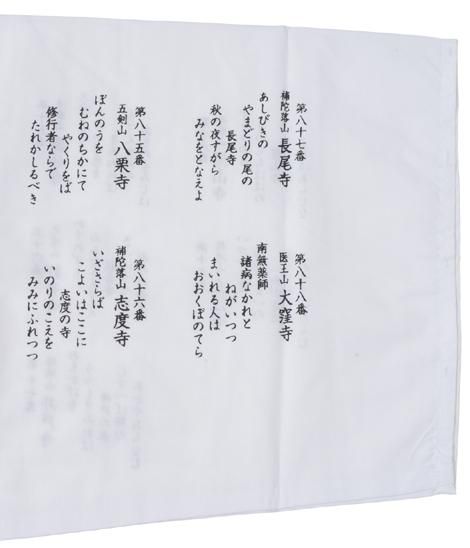 第八十五番
五剣山 八栗寺
ぼんのうを
むねのちかにて
やくりをば
修行者ならで
たれかしるべき
第八十六番
補陀落山 志度寺
いざさらば
こよいはここに
志度の寺
いのりのこえを
みみにふれつつ
第八十七番
補陀落山 長尾寺
あしびきの
やまどりの尾の
長尾寺
秋の夜すがら
みなをとなえよ
第八十八番
医王山 大窪寺
南無薬師
諸病なかれと
ねがいつつ
まいれる人は
おおくぼのてら